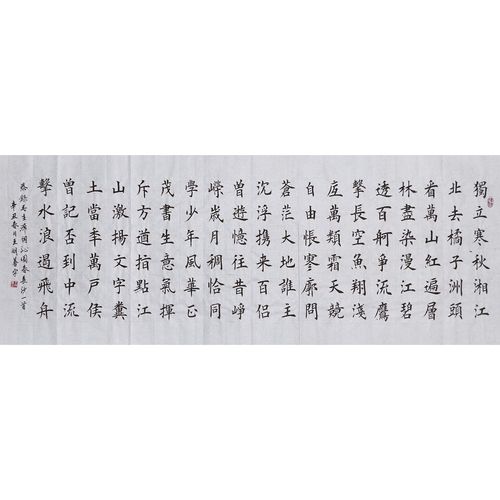 獨立寒秋湘江
北去橘子洲頭
看萬山紅遍層
林盡染漫江碧
透百舸爭流鷹
擊長空魚翔淺
底萬類霜天競
自由悵寥廓問
蒼茫大地誰主
沉浮攜來百侶
曾遊憶往昔崢
嶸歲月稠恰同
學少年風華正
茂書生意氣揮
斥方遒指點江
山激揚文字糞
土當秊萬戶侯
曾記否到中流
擊水浪遏飛舟
恭錄毛主席詞沁園春長沙一首
辛丑春月王